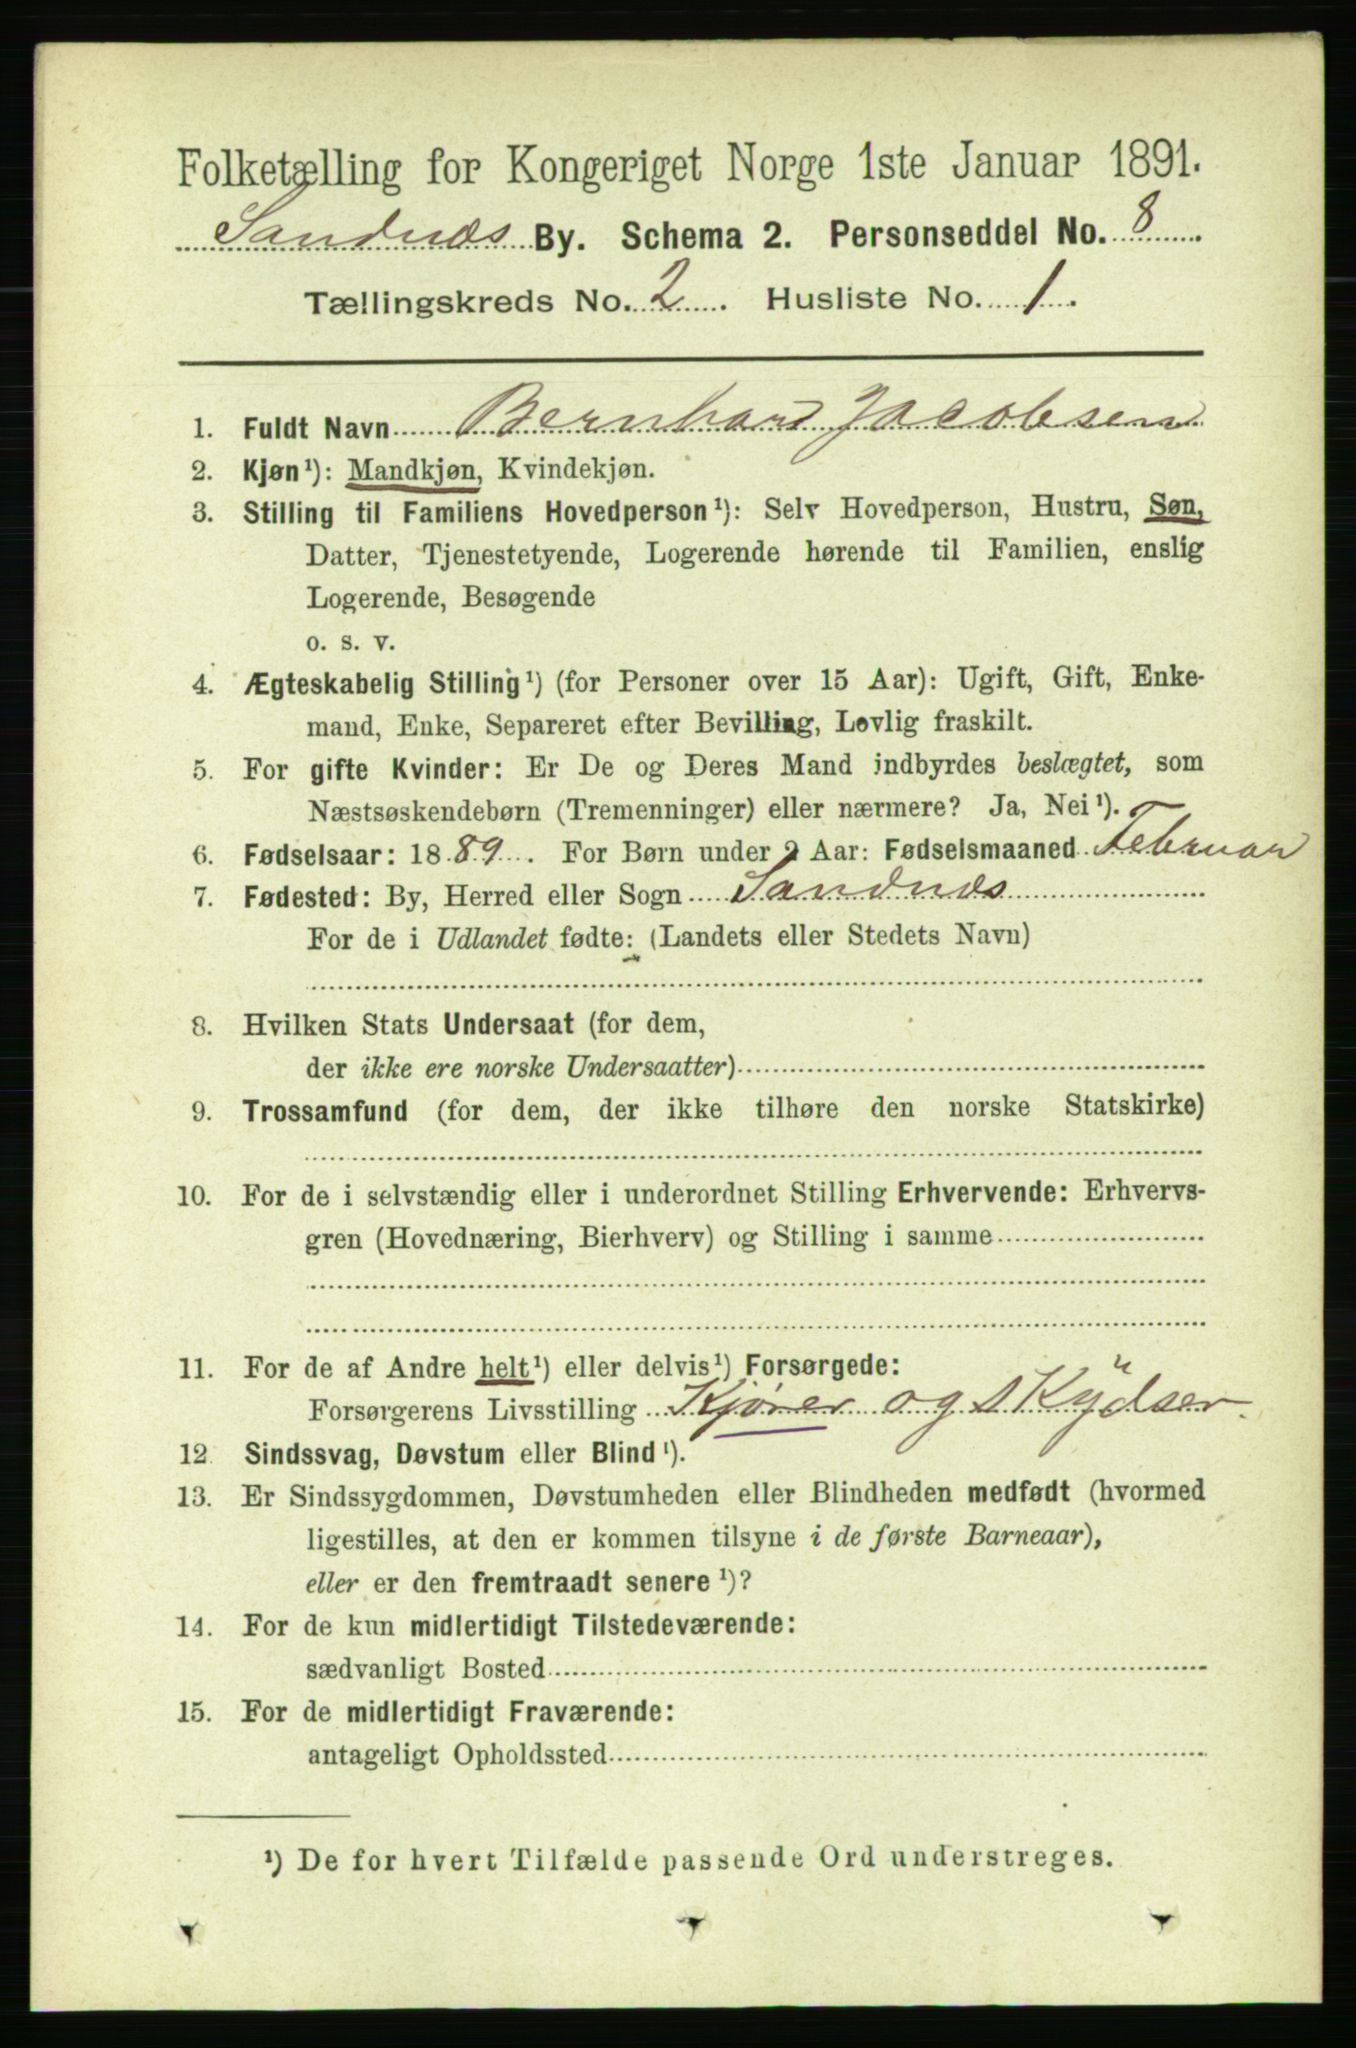 Folketælling for Kongeriget Norge 1ste Januar 1891.
Sandnæs By. Schema 2. Personseddel No. 8
Tællingskreds No. 2. Husliste No. 1.
1. Fuldt Navn Bernhard Jacobsen
2. Kjøn¹): Mandkjøn, Kvindekjøn.
3. Stilling til Familiens Hovedperson¹): Selv Hovedperson, Hustru, Søn,
Datter, Tjenestetyende, Logerende hørende til Familien, enslig
Logerende, Besøgende
o. s. v.
4. Ægteskabelig Stilling¹) (for Personer over 15 Aar): Ugift, Gift, Enke-
mand, Enke, Separeret efter Bevilling, Lovlig fraskilt.
5. For gifte Kvinder: Er De og Deres Mand indbyrdes beslægtet, som
Næstsøskendebørn (Tremenninger) eller nærmere? Ja, Nei¹).
6. Fødselsaar: 1889. For Børn under 2 Aar: Fødselsmaaned Februar
7. Fødested: By, Herred eller Sogn Sandnæs
For de i Udlandet fødte: (Landets eller Stedets Navn)
8. Hvilken Stats Undersaat (for dem,
der ikke ere norske Undersaatter)
9. Trossamfund (for dem, der ikke tilhøre den norske Statskirke)
10. For de i selvstændig eller i underordnet Stilling Erhvervende: Erhvervs-
gren (Hovednæring, Bierhverv) og Stilling i samme
11. For de af Andre helt¹) eller delvis¹) Forsørgede:
Forsørgerens Livsstilling Kjører og Skÿdser.
12. Sindssvag, Døvstum eller Blind¹).
13. Er Sindssygdommen, Døvstumheden eller Blindheden medfødt (hvormed
ligestilles, at den er kommen tilsyne i de første Barneaar),
eller er den fremtraadt senere¹)?
14. For de kun midlertidigt Tilstedeværende:
sædvanligt Bosted
15. For de midlertidigt Fraværende:
antageligt Opholdssted
¹) De for hvert Tilfælde passende Ord understreges.